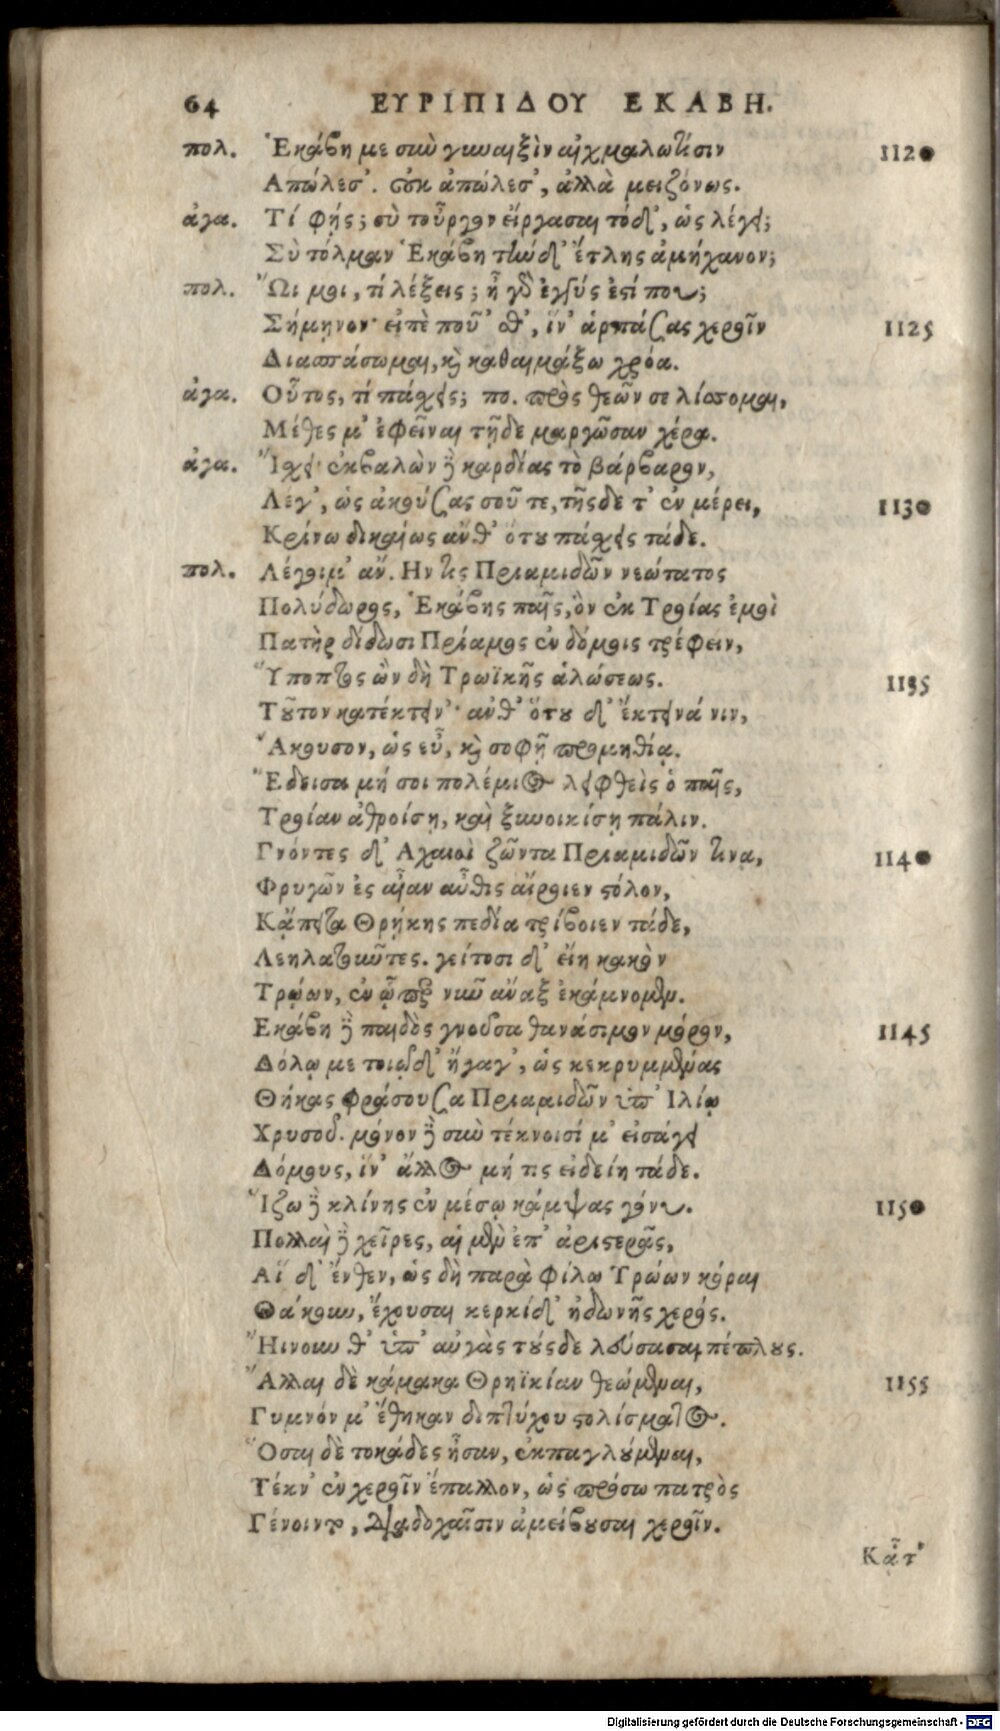 64 ΕΥΡΙΠΙΔΟΥ ΕΚΑΒΗ.
πολ. Ἑκάβη με σὺν γυναιξὶν αἰχμαλωτίσιν 1120
Απώλεσ'. οὐκ ἀπώλεσ', ἀλλὰ μειζόνως.
ἀγα. Τί φῄς; σὺ τοὖργον εἴργασαι τόδ', ὡς λέγει;
Σὺ τόλμαν Ἑκάβη τήνδ' ἔτλης ἀμήχανον;
πολ. Ὤι μοι, τί λέξεις; ἦ γὰρ ἐγγύς ἐστί που;
Σήμηνον· εἰπὲ ποῦ 'σθ', ἵν' ἁρπάσας χεροῖν 1125
Διασπάσωμαι, καὶ καθαιμάξω χρόα.
ἀγα. Οὗτος, τί πάσχεις; πο. πρὸς θεῶν σε λίσσομαι,
Μέθες μ' ἐφεῖναι τῇδε μαργῶσαν χέρα.
ἀγα. Ἴσχε· ἐκβαλὼν δὲ καρδίας τὸ βάρβαρον,
Λέγ', ὡς ἀκούσας σοῦ τε, τῆςδε τ' ἐν μέρει, 1130
Κρίνω δικαίως ἀνθ' ὅτου πάσχεις τάδε.
πολ. Λέγοιμ' αν. Ην τις Πριαμιδῶν νεώτατος
Πολύδωρος, Ἑκάβης παῖς, ὃν ἐκ Τροίας ἐμοὶ
Πατὴρ δίδωσι Πρίαμος ἐν δόμοις τρέφειν,
Ὕποπτος ὢν δὴ Τρωϊκῆς ἁλώσεως. 1135
Τοῦτον κατέκτειν'· ἀνθ' ὅτου δ' ἔκτεινά νιν,
Ἄκουσον, ὡς εὖ, καὶ σοφῇ προμηθίᾳ.
Ἔδεισα μή σοι πολέμιος λειφθεὶς ὁ παῖς,
Τροίαν ἀθροίσῃ, καὶ ξυνοικίσῃ πάλιν.
Γνόντες δ' Αχαιοὶ ζῶντα Πριαμιδῶν τινα, 1140
Φρυγῶν ἐς αἶαν αὖθις αἴροιεν στόλον,
Κἄπειτα Θρῄκης πεδία τρίβοιεν τάδε,
Λεηλατοῦντες. γείτοσι δ' εἴη κακὸν
Τρώων, ἐν ᾧπερ νῦν ἄναξ ἐκάμνομεν.
Εκάβη δὲ παιδὸς γνοῦσα θανάσιμον μόρον, 1145
Δόλῳ με τοιῷδ' ἤγαγ', ὡς κεκρυμμένας
Θήκας φράσουσα Πριαμιδῶν ὑπ' Ιλίῳ
Χρυσοῦ. μόνον δὲ σὺν τέκνοισί μ' εἰσάγει
Δόμους, ἵν' ἄλλος μή τις εἰδείη τάδε.
Ἵζω δὲ κλίνης ἐν μέσῳ κάμψας γόνυ. 1150
Πολλαὶ δὲ χεῖρες, αἱ μὲν ἐπ' ἀριστερᾶς,
Αἵ δ' ἔνθεν, ὡς δὴ παρὰ φίλῳ Τρώων κόραι
Θάκουν, ἔχουσαι κερκίδ' ἠδωνῆς χερός.
Ἤινουν θ' ὑπ' αὐγὰς τούςδε λεύσασαι πέπλους.
Ἄλλαι δὲ κάμακα Θρηϊκίαν θεώμεναι, 1155
Γυμνόν μ' ἔθηκαν διπτύχου στολίσματος.
Ὅσαι δὲ τοκάδες ἦσαν, ἐκπαγλούμεναι,
Τέκν' ἐν χεροῖν ἔπαλλον, ὡς πρόσω πατρὸς
Γένοιντο, διαδοχαῖσιν ἀμείβουσαι χεροῖν.
Κᾆτ'
Digitalisierung gefördert durch die Deutsche Forschungsgemeinschaft - DFG